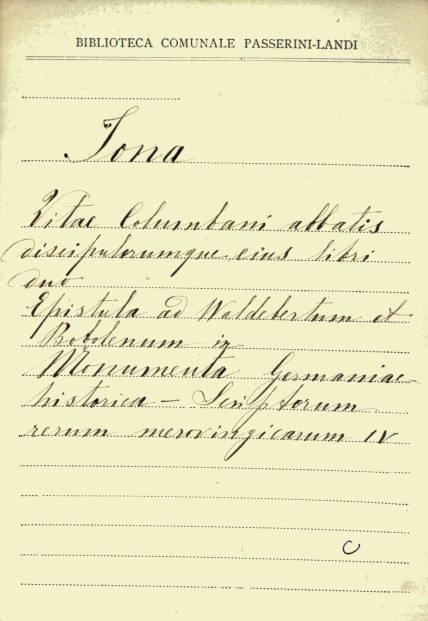 BIBLIOTECA COMUNALE PASSERINI-LANDI
Iona
Vitae Columbani abbatis
discipulorumque eius libri
duo
Epistula ad Waldebertum et
Bobolenum in
Monumenta Germaniae
historica - Scriptorum
rerum merovingicarum IV
C